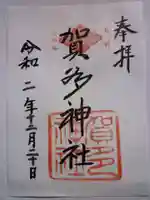 奉拝
賀多神社
令和二年十二月二十日
賀多
神社